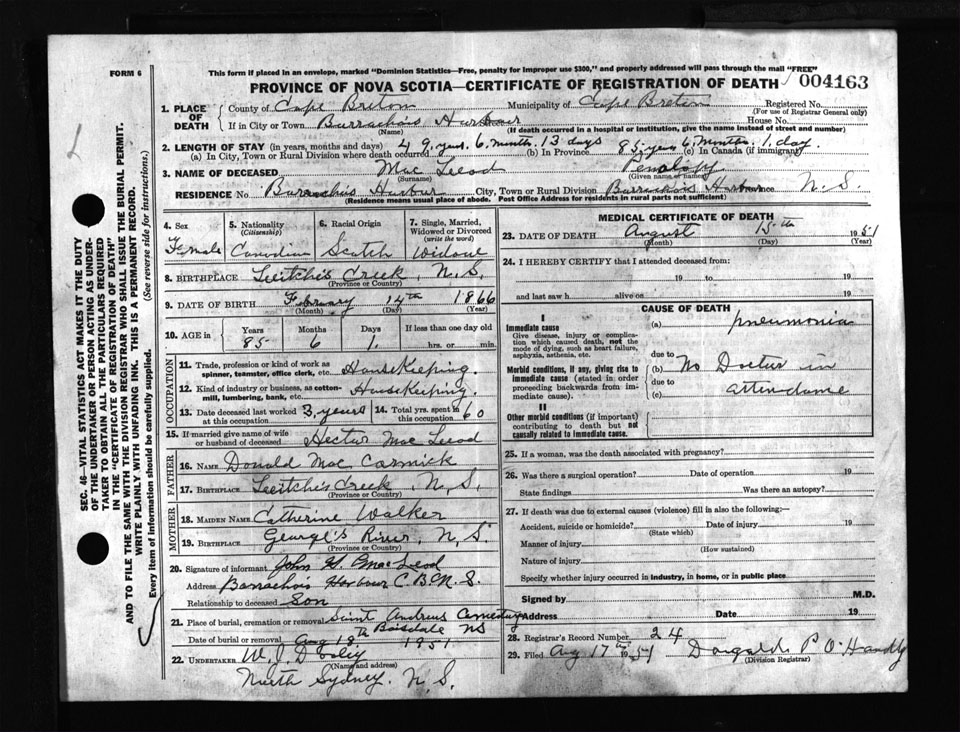 FORM 6
This form if placed in an envelope, marked "Dominion Statistics—Free, penalty for improper use $300," and properly addressed will pass through the mail "FREE"
PROVINCE OF NOVA SCOTIA—CERTIFICATE OF REGISTRATION OF DEATH 004163
1. PLACE OF DEATH
County of Cape Breton Municipality of Cape Breton Registered No.
(For use of Registrar General only)
If in City or Town Barrachois Harbour House No.
(Name) (If death occurred in a hospital or institution, give the name instead of street and number)
2. LENGTH OF STAY (in years, months and days) 49 years. 6 months. 13 days 85 years 6 months. 1. day.
(a) In City, Town or Rural Division where death occurred (b) In Province (c) In Canada (if immigrant)
3. NAME OF DECEASED Mac Leod Penalopy
(Surname) (Given name or names)
RESIDENCE No. Barrachois Harbour City, Town or Rural Division Barrachois Harbour N.S.
(Residence means usual place of abode. Post Office Address for residents in rural parts not sufficient)
4. Sex 5. Nationality (Citizenship) 6. Racial Origin 7. Single, Married, Widowed or Divorced (write the word)
Female Canadian Scotch Widow
8. BIRTHPLACE Leitches Creek, N.S.
(Province or Country)
9. DATE OF BIRTH February 14th 1866
(Month) (Day) (Year)
10. AGE in Years Months Days If less than one day old
85 6 1. hrs. or min.
OCCUPATION
11. Trade, profession or kind of work as spinner, teamster, office clerk, etc. HouseKeeping.
12. Kind of industry or business, as cotton-mill, lumbering, bank, etc. HouseKeeping.
13. Date deceased last worked at this occupation 3 years 14. Total yrs. spent in this occupation 60
15. If married give name of wife or husband of deceased Hector Mac Leod
FATHER
16. NAME Donald Mac Cormick
17. BIRTHPLACE Leitches Creek, N.S.
(Province or Country)
MOTHER
18. MAIDEN NAME Catherine Walker
19. BIRTHPLACE George's River, N.S.
(Province or Country)
20. Signature of informant John H. MacLeod
Address Barrachois Harbour C.B. N.S.
Relationship to deceased Son
21. Place of burial, cremation or removal Saint Andrews Cemetery
Boisdale NS
Date of burial or removal Aug 18th 1951
22. UNDERTAKER W.J. Dooley
(Name and address)
North Sydney. N.S.
MEDICAL CERTIFICATE OF DEATH
23. DATE OF DEATH August 15th 1951
(Month) (Day) (Year)
24. I HEREBY CERTIFY that I attended deceased from:
19 to 19
and last saw h alive on 19
CAUSE OF DEATH
I
Immediate cause
Give disease, injury or complication which caused death, not the mode of dying, such as heart failure, asphyxia, asthenia, etc.
(a) pneumonia
due to
Morbid conditions, if any, giving rise to immediate cause (stated in order proceeding backwards from immediate cause).
(b) No Doctor in
due to
(c) attendance
II
Other morbid conditions (if important) contributing to death but not causally related to immediate cause.
25. If a woman, was the death associated with pregnancy?
26. Was there a surgical operation? Date of operation 19
State findings Was there an autopsy?
27. If death was due to external causes (violence) fill in also the following:—
Accident, suicide or homicide? Date of injury 19
(State which)
Manner of injury
(How sustained)
Nature of injury
Specify whether injury occurred in industry, in home, or in public place
Signed by M.D.
Address Date 19
28. Registrar's Record Number 24
29. Filed Aug 17th 1951 P O'Handly
(Division Registrar)
SEC. 46—VITAL STATISTICS ACT MAKES IT THE DUTY
OF THE UNDERTAKER OR PERSON ACTING AS UNDER-
TAKER TO OBTAIN ALL THE PARTICULARS REQUIRED
IN THE "CERTIFICATE OF REGISTRATION OF DEATH"
AND TO FILE THE SAME WITH THE DIVISION REGISTRAR WHO SHALL ISSUE THE BURIAL PERMIT.
WRITE PLAINLY WITH UNFADING INK. THIS IS A PERMANENT RECORD.
Every item of information should be carefully supplied. (See reverse side for instructions.)